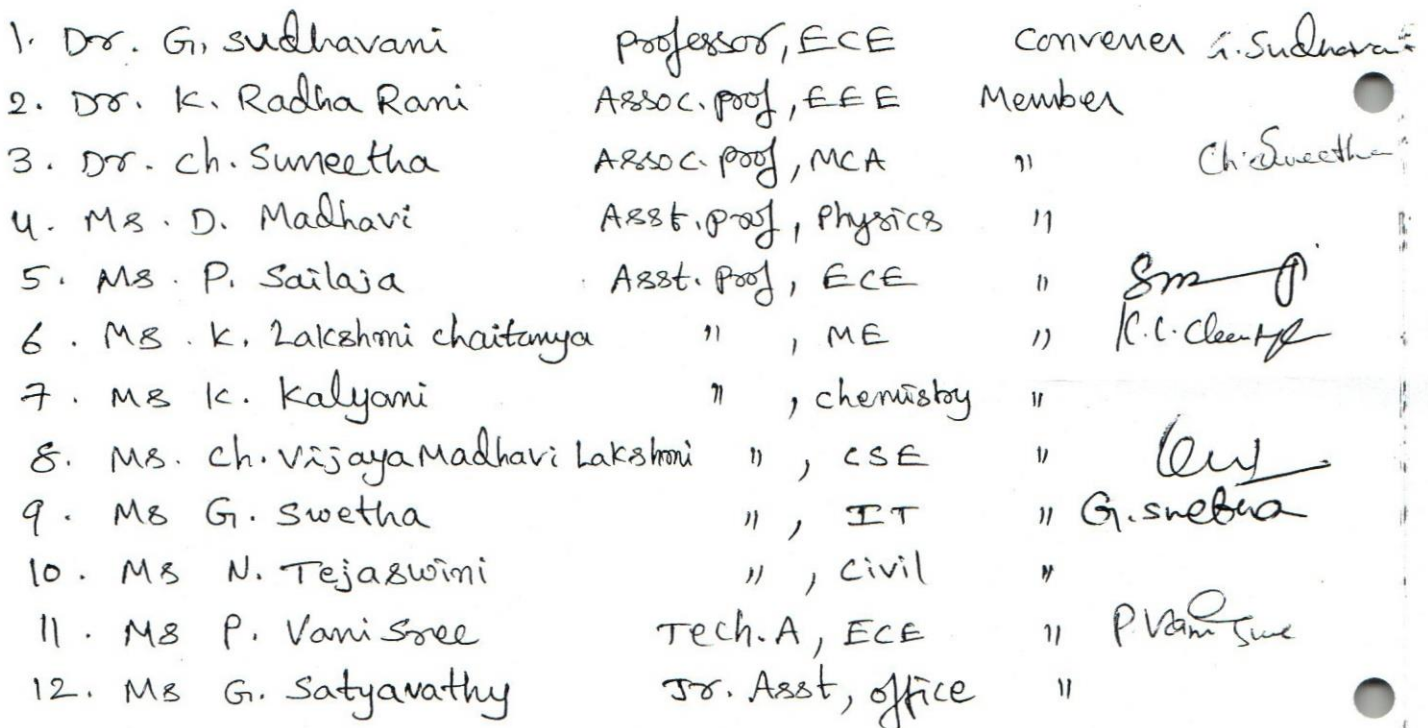 1. Dr. G. Sudhavani Professor, ECE Convener G. Sudhava
2. Dr. K. Radha Rani Assoc. Prof, EEE Member
3. Dr. Ch. Suneetha Assoc. Prof, MCA " Ch. Suneetha
4. Ms. D. Madhavi Asst. Prof, Physics "
5. Ms. P. Sailaja Asst. Prof, ECE "
6. Ms. K. Lakshmi Chaitanya " , ME "
7. Ms K. Kalyani " , Chemistry "
8. Ms. Ch. Vijaya Madhavi Lakshmi " , CSE "
9. Ms G. Swetha " , IT " G. Swetha
10. Ms N. Tejaswini " , Civil "
11. Ms P. Vani Sree Tech. A, ECE " P. Vani Sree
12. Ms G. Satyavathy Jr. Asst, Office "